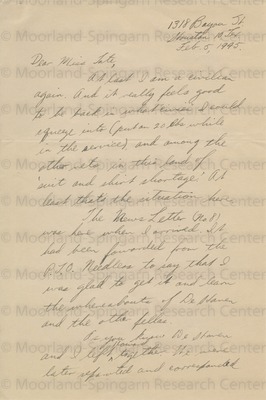 1318 Bayou St
Houston 10, Tex
Feb. 5, 1945.
Dear Miss Tate,
At last I am a civilian
again. And it really feels good
to be back in "whatever I could
squeeze into (put on 20 lbs while
in the service) and among the
other vets in this land of
'suit and shirt shortage.' At
least thats the situation here.
The News Letter (No 8)
was here when I arrived. It
had been forwarded from the
A.P.O. Needless to say that I
was glad to get it and learn
the whereabouts of De Haven
and the other fellas.
As you know De Haven
and I left together. We were
later separated and corresponded
Moorland-Spingarn Research Center